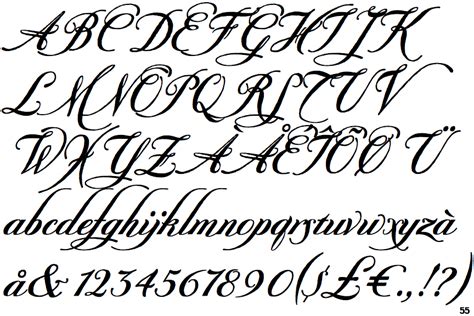 ABCDEFGHIJK
LMNOPQRSTUV
WXYZÀÅÉÎÕØÜ
abcdefghijklmnopqrstuvwxyzà
å&1234567890($£€.,!?)
55